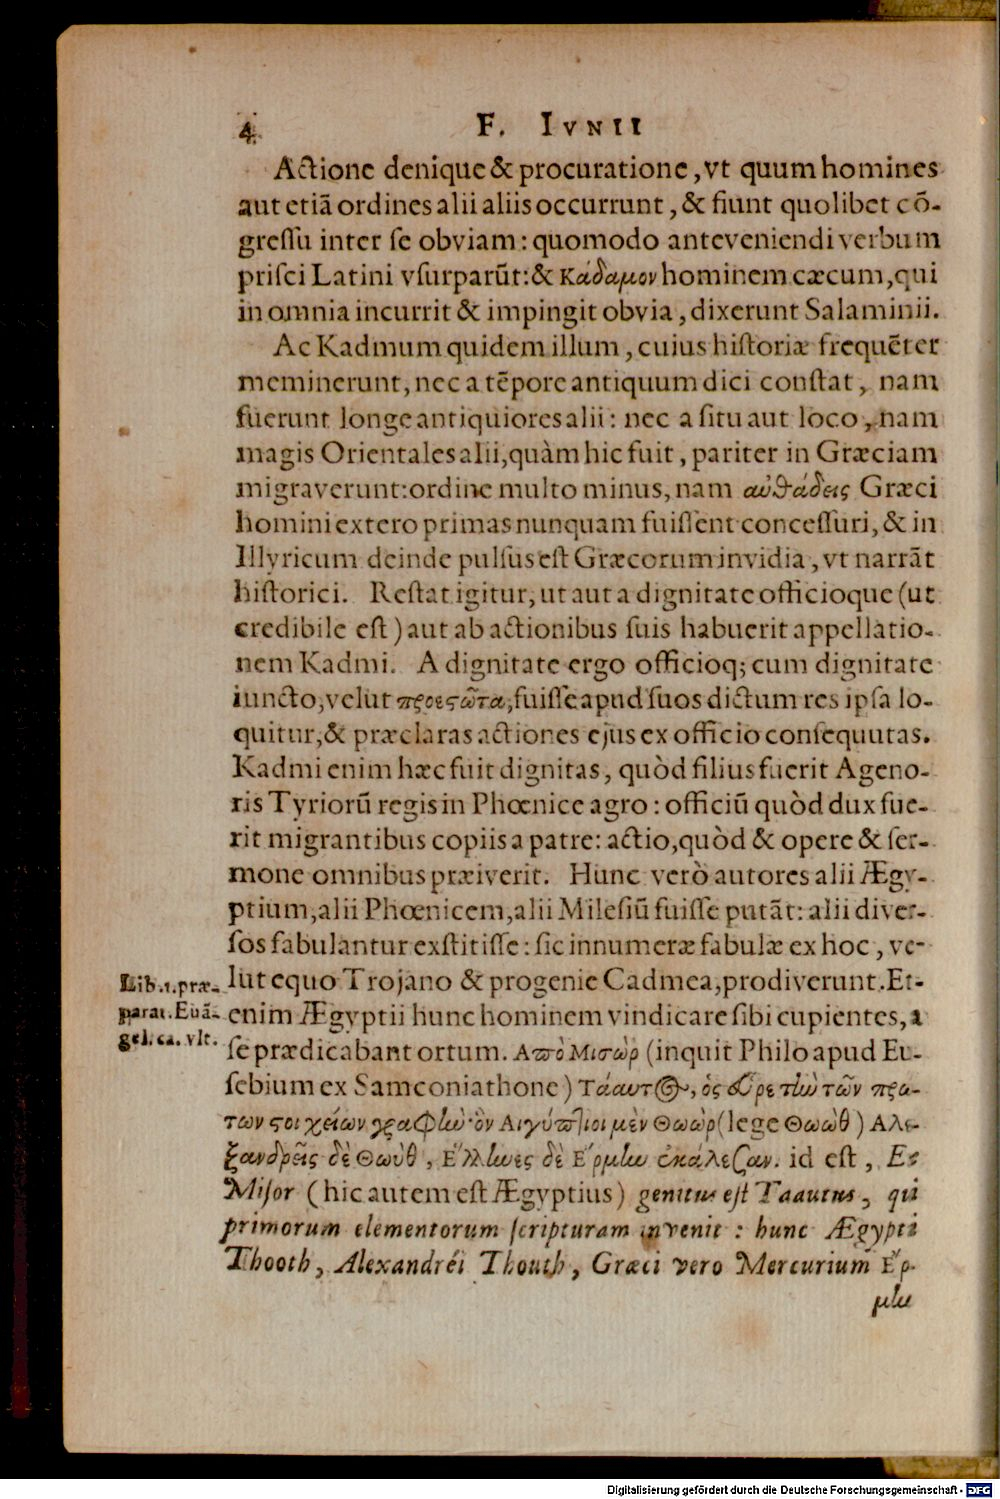 4 F. IVNII
Actione denique & procuratione, vt quum homines
aut etiã ordines alii aliis occurrunt, & fiunt quolibet cõ-
gressu inter se obviam: quomodo anteveniendi verbum
prisci Latini vsurparũt: & Κάδαμον hominem cæcum, qui
in omnia incurrit & impingit obvia, dixerunt Salaminii.
Ac Kadmum quidem illum, cuius historiæ frequẽter
meminerunt, nec a tẽpore antiquum dici constat, nam
fuerunt longe antiquiores alii: nec a situ aut loco, nam
magis Orientales alii, quàm hic fuit, pariter in Græciam
migraverunt: ordine multo minus, nam αὐθάδεις Græci
homini extero primas nunquam fuissent concessuri, & in
Illyricum deinde pulsus est Græcorum invidia, vt narrãt
historici. Restat igitur, ut aut a dignitate officioque (ut
credibile est) aut ab actionibus suis habuerit appellatio-
nem Kadmi. A dignitate ergo officioq; cum dignitate
iuncto, velut προεςῶτα, fuisse apud suos dictum res ipsa lo-
quitur, & præclaras actiones ejus ex officio consequutas.
Kadmi enim hæc fuit dignitas, quòd filius fuerit Ageno-
ris Tyriorũ regis in Phœnice agro: officiũ quòd dux fue-
rit migrantibus copiis a patre: actio, quòd & opere & ser-
mone omnibus præiverit. Hunc verò autores alii Ægy-
ptium, alii Phœnicem, alii Milesiũ fuisse putãt: alii diver-
sos fabulantur exstitisse: sic innumeræ fabulæ ex hoc, ve-
lut equo Trojano & progenie Cadmea, prodiverunt. Et-
enim Ægyptii hunc hominem vindicare sibi cupientes, a
se prædicabant ortum. Απὸ Μισὼρ (inquit Philo apud Eu-
sebium ex Samconiathone) Τάαυτος, ὃς εὗρε τὴν τῶν πρώ-
των ςοιχείων γραφὴν· ὃν Αἰγύπτιοι μὲν Θωὼρ (lege Θωὼθ) Αλε-
ξανδρεῖς δὲ Θωὺθ, Ἕλληνες δὲ Ἑρμὴν ἐκάλεσαν. id est, Ex
Misor (hic autem est Ægyptius) genitus est Taautus, qui
primorum elementorum scripturam invenit: hunc Ægyptii
Thooth, Alexandréi Thouth, Græci vero Mercurium Ἑρ-
μὴν
Lib. 1. præ-
parat. Euã-
gel. ca. vlt.
Digitalisierung gefördert durch die Deutsche Forschungsgemeinschaft - DFG